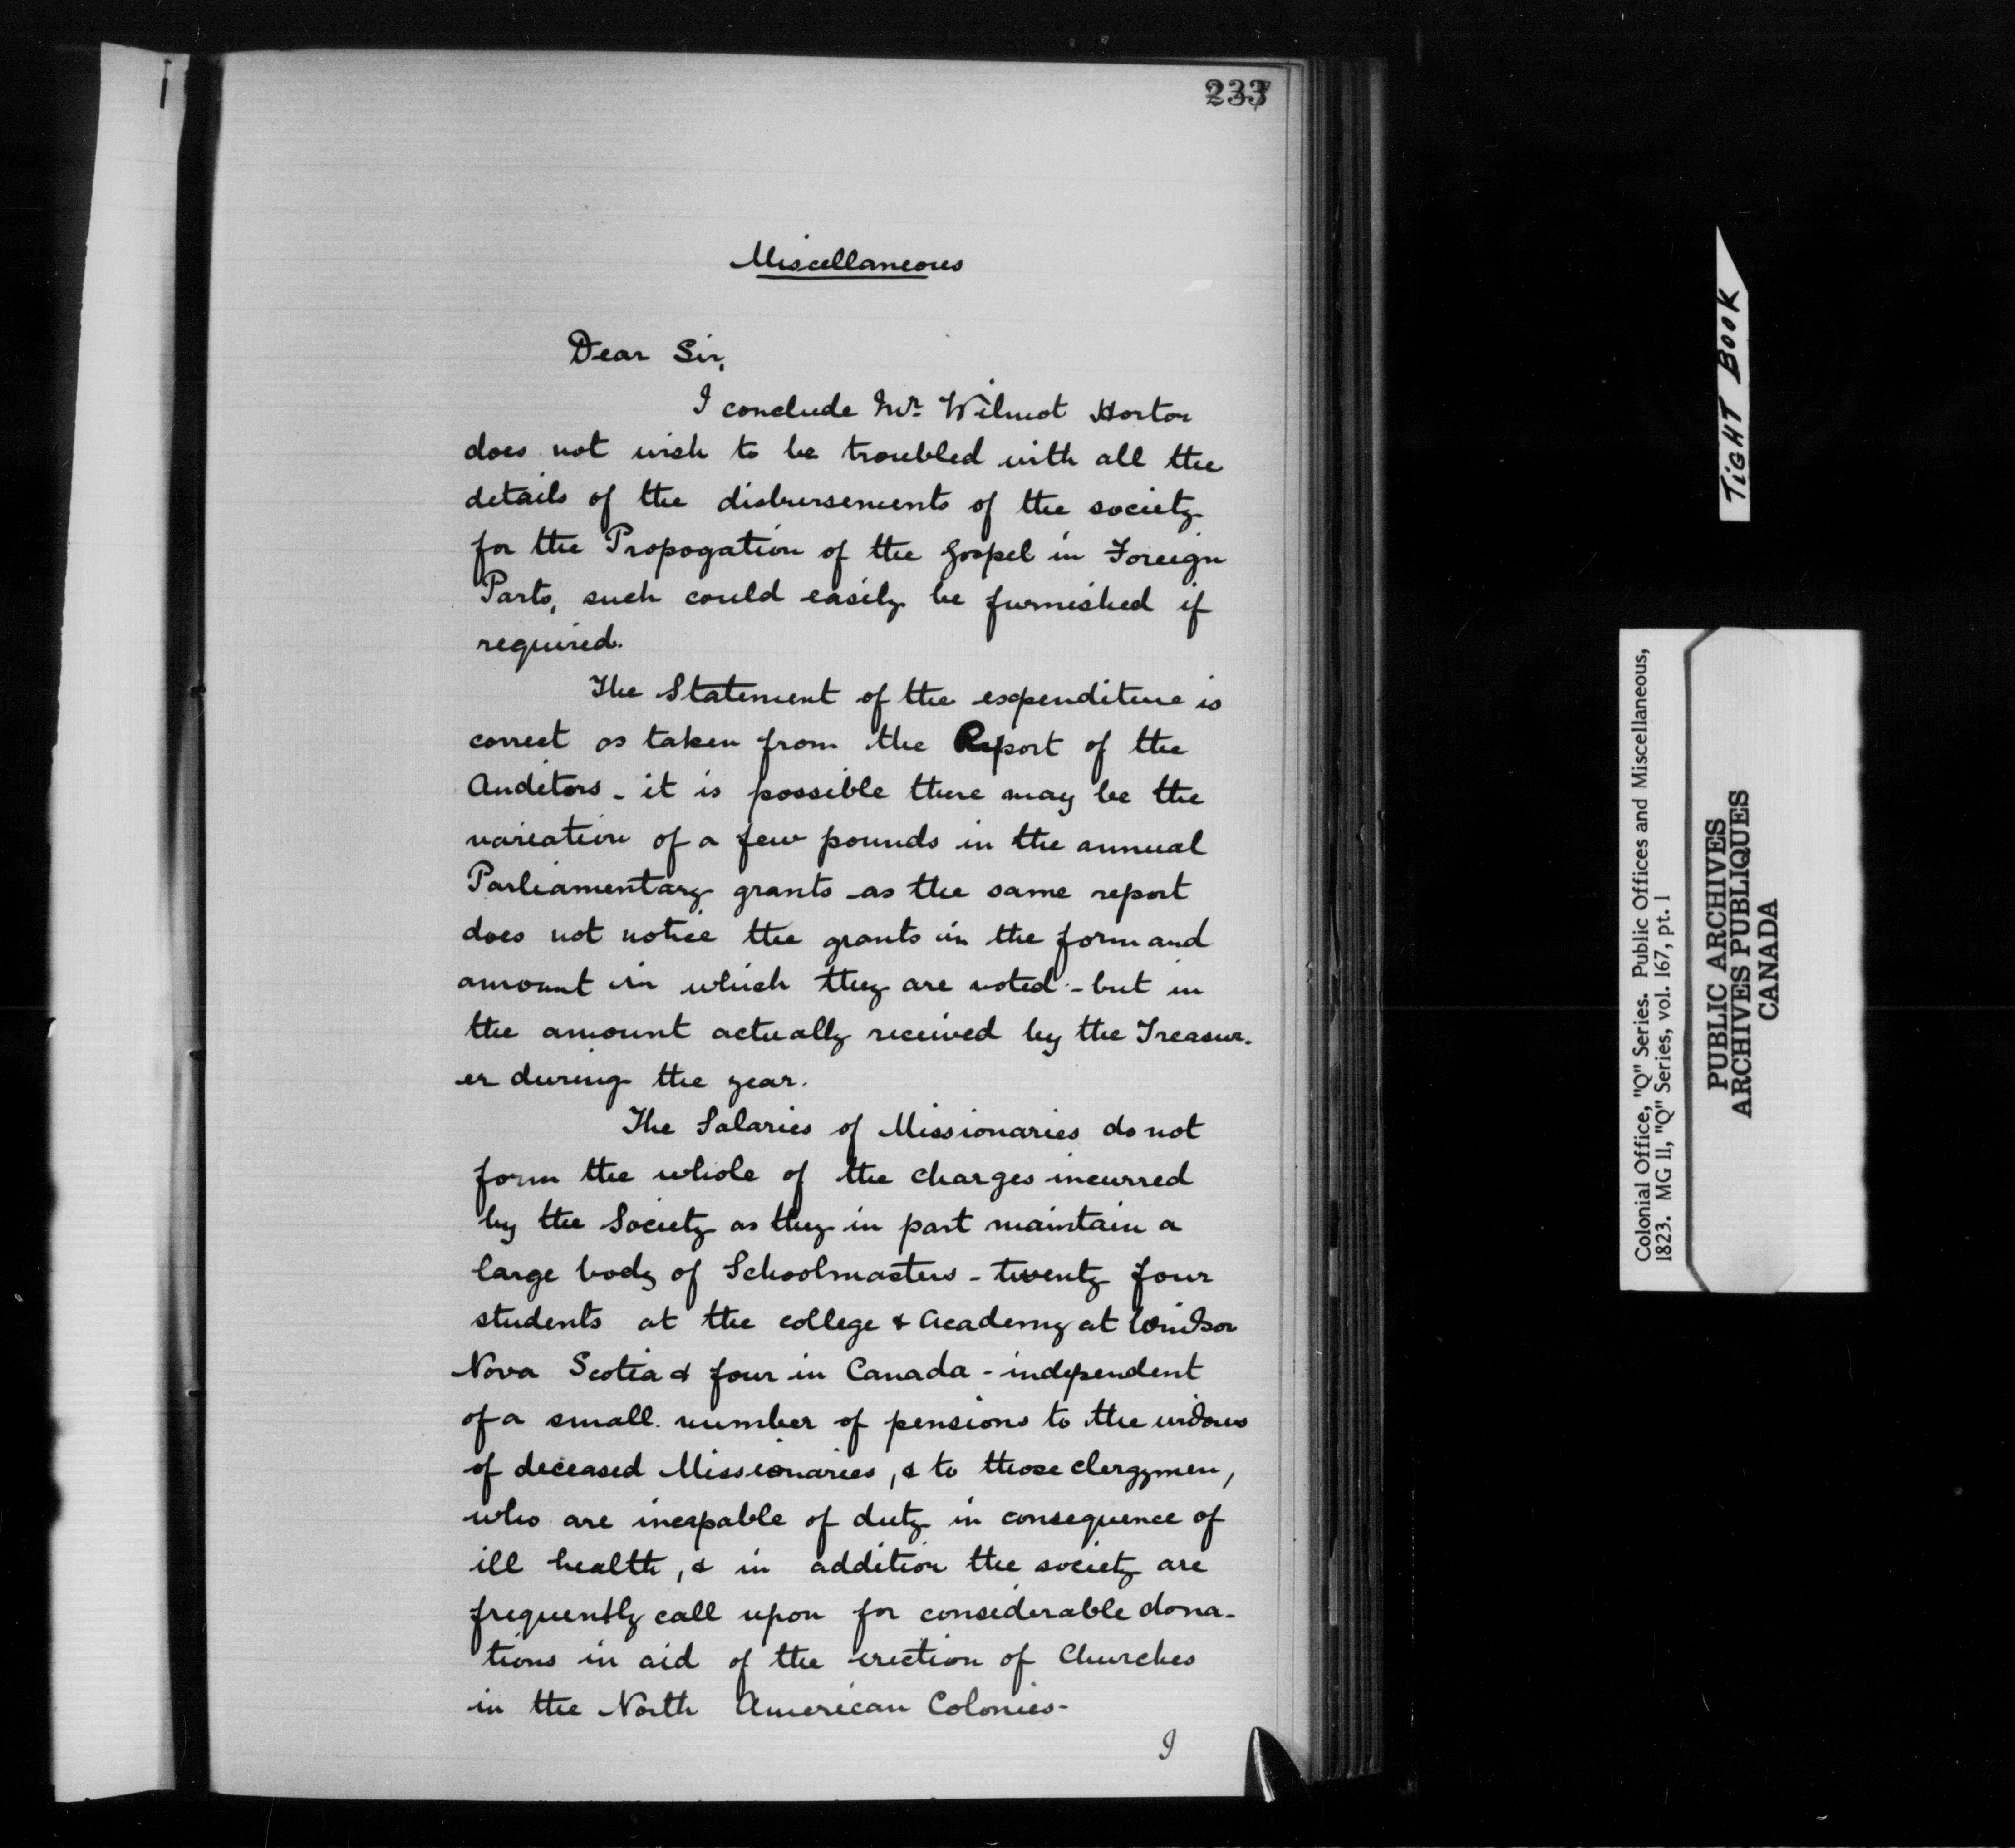 233
Miscellaneous
Dear Sir,
I conclude Mr. Wilmot Horton
does not wish to be troubled with all the
details of the disbursements of the society
for the Propogation of the Gospel in Foreign
Parts, such could easily be furnished if
required.
The Statement of the expenditure is
correct as taken from the Report of the
Auditors - it is possible there may be the
variation of a few pounds in the annual
Parliamentary grants as the same report
does not notice the grants in the form and
amount in which they are voted - but in
the amount actually received by the Treasur-
er during the year.
The Salaries of Missionaries do not
form the whole of the charges incurred
by the Society as they in part maintain a
large body of Schoolmasters - twenty four
students at the college & Academy at Windsor
Nova Scotia & four in Canada - independent
of a small number of pensions to the widows
of deceased Missionaries, & to those clergymen,
who are incapable of duty in consequence of
ill health, & in addition the society are
frequently call upon for considerable dona-
tions in aid of the erection of Churches
in the North American Colonies-
I
TIGHT BOOK
Colonial Office, "Q" Series. Public Offices and Miscellaneous,
1823. MG 11, "Q" Series, vol. 167, pt. 1
PUBLIC ARCHIVES
ARCHIVES PUBLIQUES
CANADA